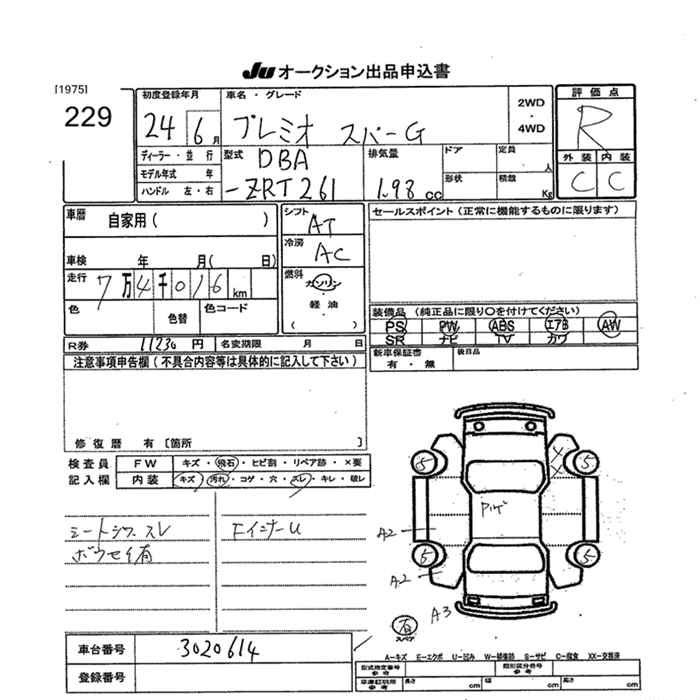 JU オークション出品申込書
[1975]
229
初度登録年月
24 6月
車名・グレード
プレミオ スパーG
2WD
・
4WD
評価点
R
外装 内装
C C
ディーラー・並行
モデル年式 年
ハンドル 左・右
型式
DBA
-ZRT261
排気量
1.98 cc
ドア
形状
定員 人
積載 Kg
車歴 自家用( )
車検 年 月( 日)
走行 7万4千016km
色 色替 色コード
シフト AT
冷房 AC
燃料 ガソリン
・
軽油
・
( )
セールスポイント(正常に機能するものに限ります)
装備品(純正品に限り○を付けてください)
PS PW ABS エアB AW
SR ナビ TV カワ
R券 11230円 名変期限 月 日
新車保証書 有・無
後日品
注意事項申告欄(不具合内容等は具体的に記入して下さい)
修復歴 有[箇所 ]
検査員
記入欄
FW キズ・飛石・ヒビ割・リペア跡・×要
内装 キズ・汚れ・コゲ・穴・スレ・キレ・破レ
シートシワ スレ
ボウセイ有
FインナーU
5 5
XX
Pゲ
A2
5 5
A2
A3
有
スペア
車台番号 3020614
登録番号
A-キズ E-エクボ U-凹み W-補修跡 S-サビ C-腐食 XX-交換済
型式指定番号
参考
類別区分番号
参考
車庫証明用
参考
長さ cm
幅 cm
高さ cm